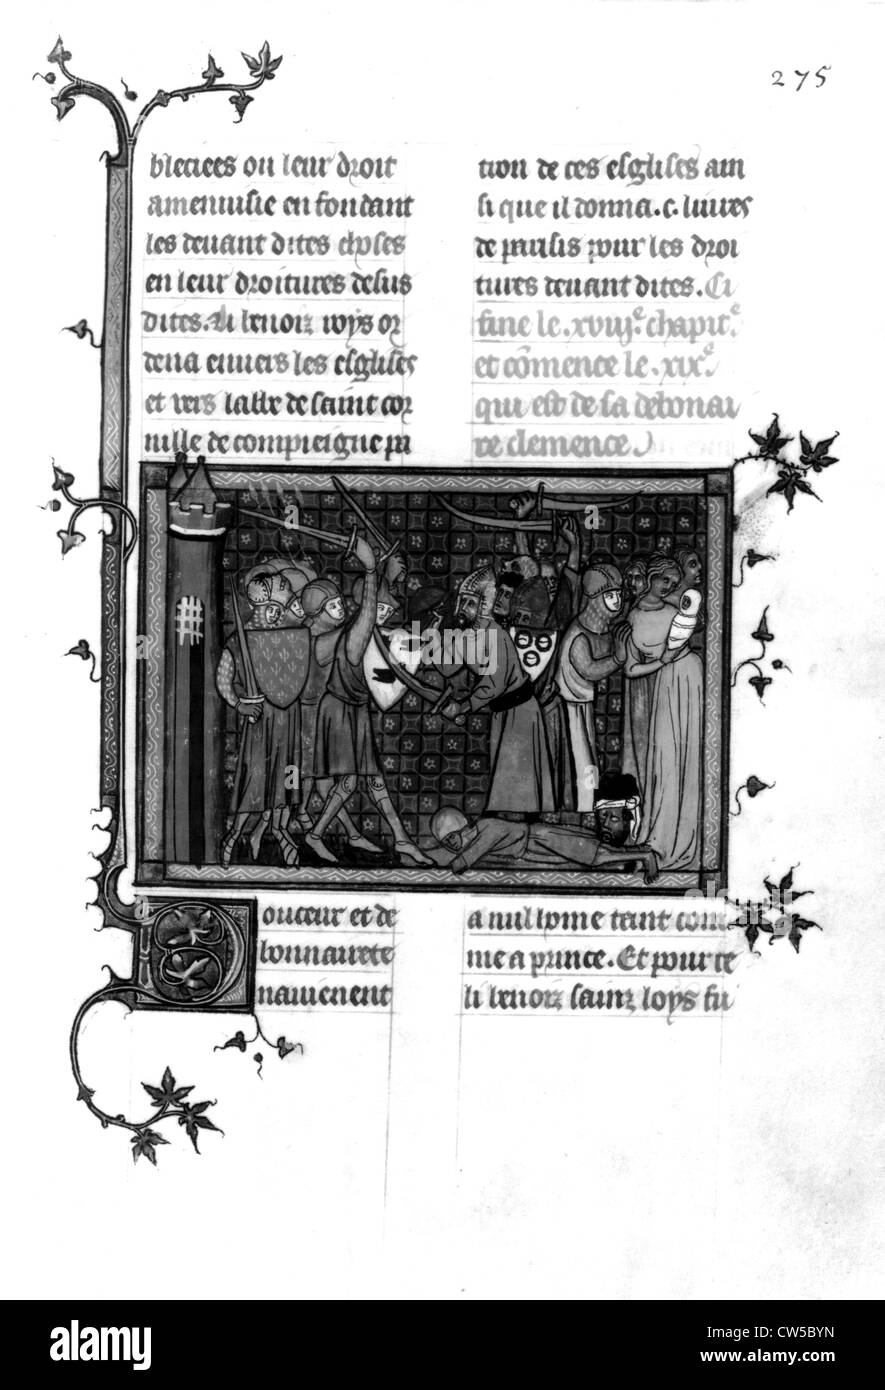 275
bleciees ou leur droit
amenuisie en fondant
les devant dites choses
en leur droitures desus
dites. Li benoiz roys or
dena envers les esglises
et vers labbe de saint cor
nille de compieigne pa
tion de ces esglises ain
si que il donna .c. livres
de parisis pour les droi
tures devant dites. Ci
fine le .xviij.e chapit.e
et cõmence le .xix.e
qui est de sa debonai
re clemence
Douceur et de
bonnairete
naviennent
a nul home tant com
me a prince. Et pour ce
li benoiz sainz loys fu
alamy
Image ID: CW5BYN
www.alamy.com